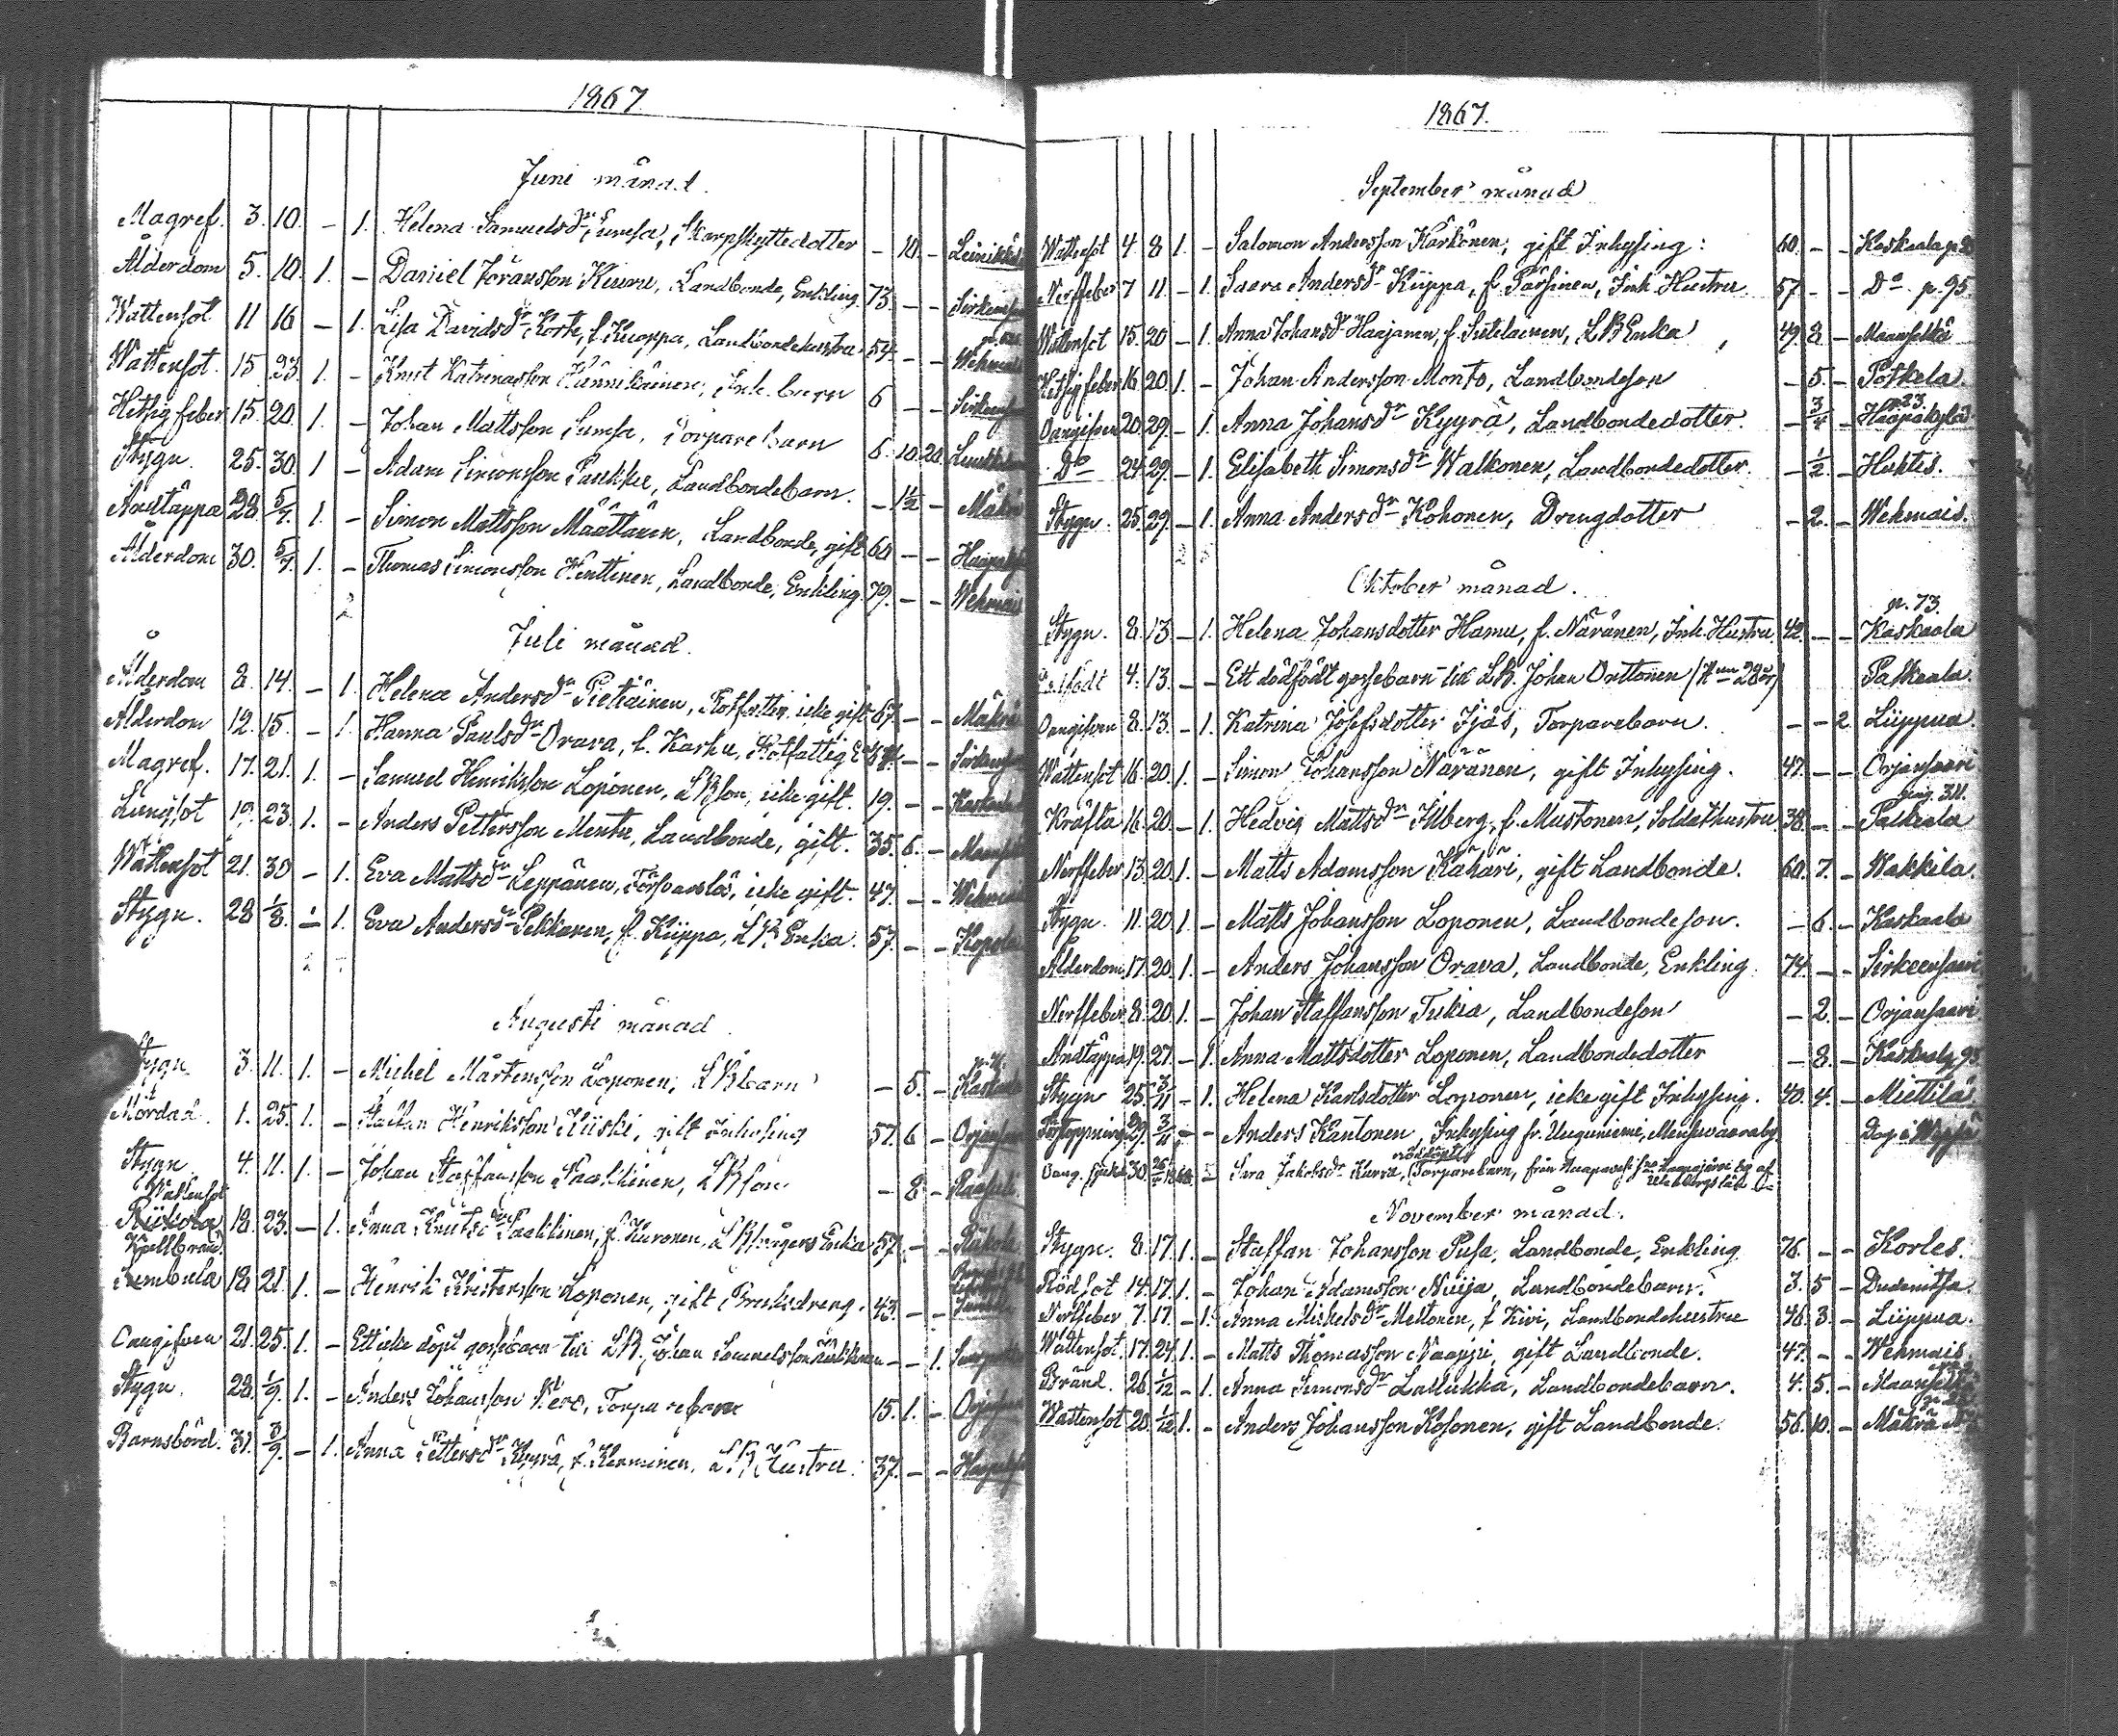 1867.
Juni månad.
Magref. 3. 10. - 1. Helena Samuelsdr Sumsa, Skarpskyttedotter - 10. -
Ålderdom 5. 10. 1. - Daniel Göransson Kiuru, Landbonde, Enkling. 73. - -
Wattensot 11 16 - 1. Lisa Davidsdr Korte, f. Kuoppa, Landbondehustru. 59. - -
Wattensot. 15. 23. 1. - Knut Katrinasson Hännikäinen, Inh. barn 6 - -
Hetsig feber 15. 20. 1. - Johan Mattsson Sumsa, Torparebarn 6. 10. 20.
Stygn. 25. 30. 1 - Adam Simonsson Paukku, Landbondebarn. - 1 1/2 - Mäkrä
Andtäppa 28 5/7. 1. - Simon Mattsson Määttänen, Landbonde, gift 60 - -
Ålderdom 30. 5/7. 1. - Thomas Simonsson Henttinen, Landbonde, Enkling. 79. - - Wehmais
Juli månad.
Ålderdom 8. 14. - 1. Helena Andersdr Pietiäinen, Rotfattig, icke gift 67. - - Mäkrä
Ålderdom 12. 15. - 1. Hanna Paulsdr Orava, f. Karhu, Rotfattig - -
Magref. 17. 21. 1. - Samuel Henriksson Loponen, LBson, icke gift. 19. - -
Lungsot 19. 23. 1. - Anders Pettersson Mentu, Landbonde, gift. 35. 6. -
Wattensot 21. 30 - 1. Eva Mattsdr Leppänen, Försvarslös, icke gift. 47. - - Wehmais
Stygn. 28 1/8. - 1. Eva Andersdr Pekkanen, f. Kiippa, LB Enka. 57. - -
Augusti månad.
Stygn 3. 11. 1. - Michel Mårtensson Loponen, LBbarn - 5. -
Mördad. 1. 25. 1. - Staffan Henriksson Kiiski, gift Inhysing 57. 6 -
Stygn 4. 11. 1. - Johan Staffansson Paakkinen, LBson - 8 -
Wattensot
18. 23. - 1. Anna Knutsdr Paakkinen, f. Kuronen, LBmågens Enka 57. - -
Kallbrand
Sumbula 18 21. 1. - Henrik Kristersson Loponen, gift Bruksdreng. 43. - -
Oangifven 21. 25. 1. - Ett icke döpt gossebarn till LB. Johan Samuelsson - - 1.
Stygn. 28. 1/9. 1. - Anders Johansson Wero, Torparebarn 15. 1. -
Barnsbörd. 31. 8/9. - 1. Anna Pettersdr Kyyrä, f. Kinnunen, LB Hustru. 37. - -
1867.
September månad
Wattensot 4 8 1. - Salomon Andersson Karkönen, gift Inhysing: 60. - - Kaskaala
Nerffeber 7 11. - 1. Saara Andersdr Kiippa, f. Pärsinen, Inh. Hustru. 57. - - Do p. 95.
Wattensot 15. 20 - 1. Anna Johansdr Haajanen, f. Sutelainen, LB Enka 49. 8. - Maanselkä
Hetsig feber 16. 20. 1. - Johan Andersson Monto, Landbondeson - 5. - Potkela.
p 23.
Oangifven 20. 29. - 1. Anna Johansdr Kyyrä, Landbondedotter. - 3/4 - Haapakylä.
Do 24. 29. - 1. Elisabeth Simonsdr Walkonen, Landbondedotter. - 1/2. - Huhtis.
Stygn. 25. 29. - 1. Anna Andersdr Kohonen, Drengdotter - 2. - Wehmais.
Oktober månad.
p. 73.
Stygn. 8. 13. - 1. Helena Johansdotter Hamu, f. Näränen, Inh. Hustru. 42. - - Kaskaala
Dödfödt 4. 13. - - Ett dödfödt gossebarn till LB. Johan Onttonen (Hun 28 år) Paskeala
Oangifven 8. 13. - 1. Katrina Josefsdotter Ijäs, Torparebarn. - - 2. Liippua.
Wattensot 16. 20. 1. - Simon Johansson Näränen, gift Inhysing. 47. - - Orjansaari
pag. 311.
Kräfta 16. 20. - 1. Hedvig Mattsdr Filberg, f. Mustonen, Soldathustru. 38. - - Paskeala
Nerffeber 13. 20. 1. - Matts Adamsson Kähäri, gift Landbonde. 60. 7. - Wakkila.
Stygn. 11. 20. 1. - Matts Johansson Loponen, Landbondeson. - 6. - Kaskaala
Ålderdom. 17. 20. 1. - Anders Johansson Orava, Landbonde, Enkling. 74. - - Sirkeensaari
Nerffeber 8. 20. 1. - Johan Staffansson Tukia, Landbondeson - 2. - Orjansaari
Andtäppa 19. 27. - 1. Anna Mattsdotter Loponen, Landbondedotter - 8. -
Stygn 25. 3/11 - 1. Helena Karlsdotter Loponen, icke gift Inhysing. 40. 4. - Miettilä.
Förstoppning 29. 3/11 - - Anders Kantonen, Inhysing fr. Uuguniemi,
nöddöpta
30. Sara Jakobsdr Kurva, (Torparebarn, från Haapavesi
November månad.
Stygn. 8. 17. 1. - Staffan Johansson Pusa, Landbonde, Enkling 76. - - Korles.
Rödsot 14. 17. 1. - Johan Adamsson Nuija, Landbondebarn. 3. 5 - Dudenitsa.
Nerffeber 7 17. - 1. Anna Michelsdr Mettonen, f Kivi, Landbondehustru 46. 3. - Liippua.
Wattensot. 17. 24. 1. - Matts Thomasson Naapi, gift Landbonde. 47. - - Wehmais
Bränd. 26 1/12 - 1. Anna Simonsdr Lallukka, Landbondebarn. 4. 5. - Maanselkä
Wattensot 20. 1/12 1. - Anders Johansson Kosonen, gift Landbonde. 56. 10. - Mäkrä